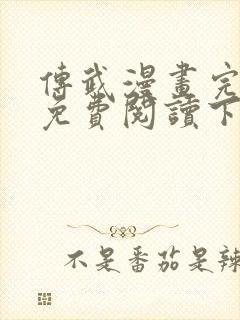 傳武漫畫完
免費閱讀下
不是番茄是辣